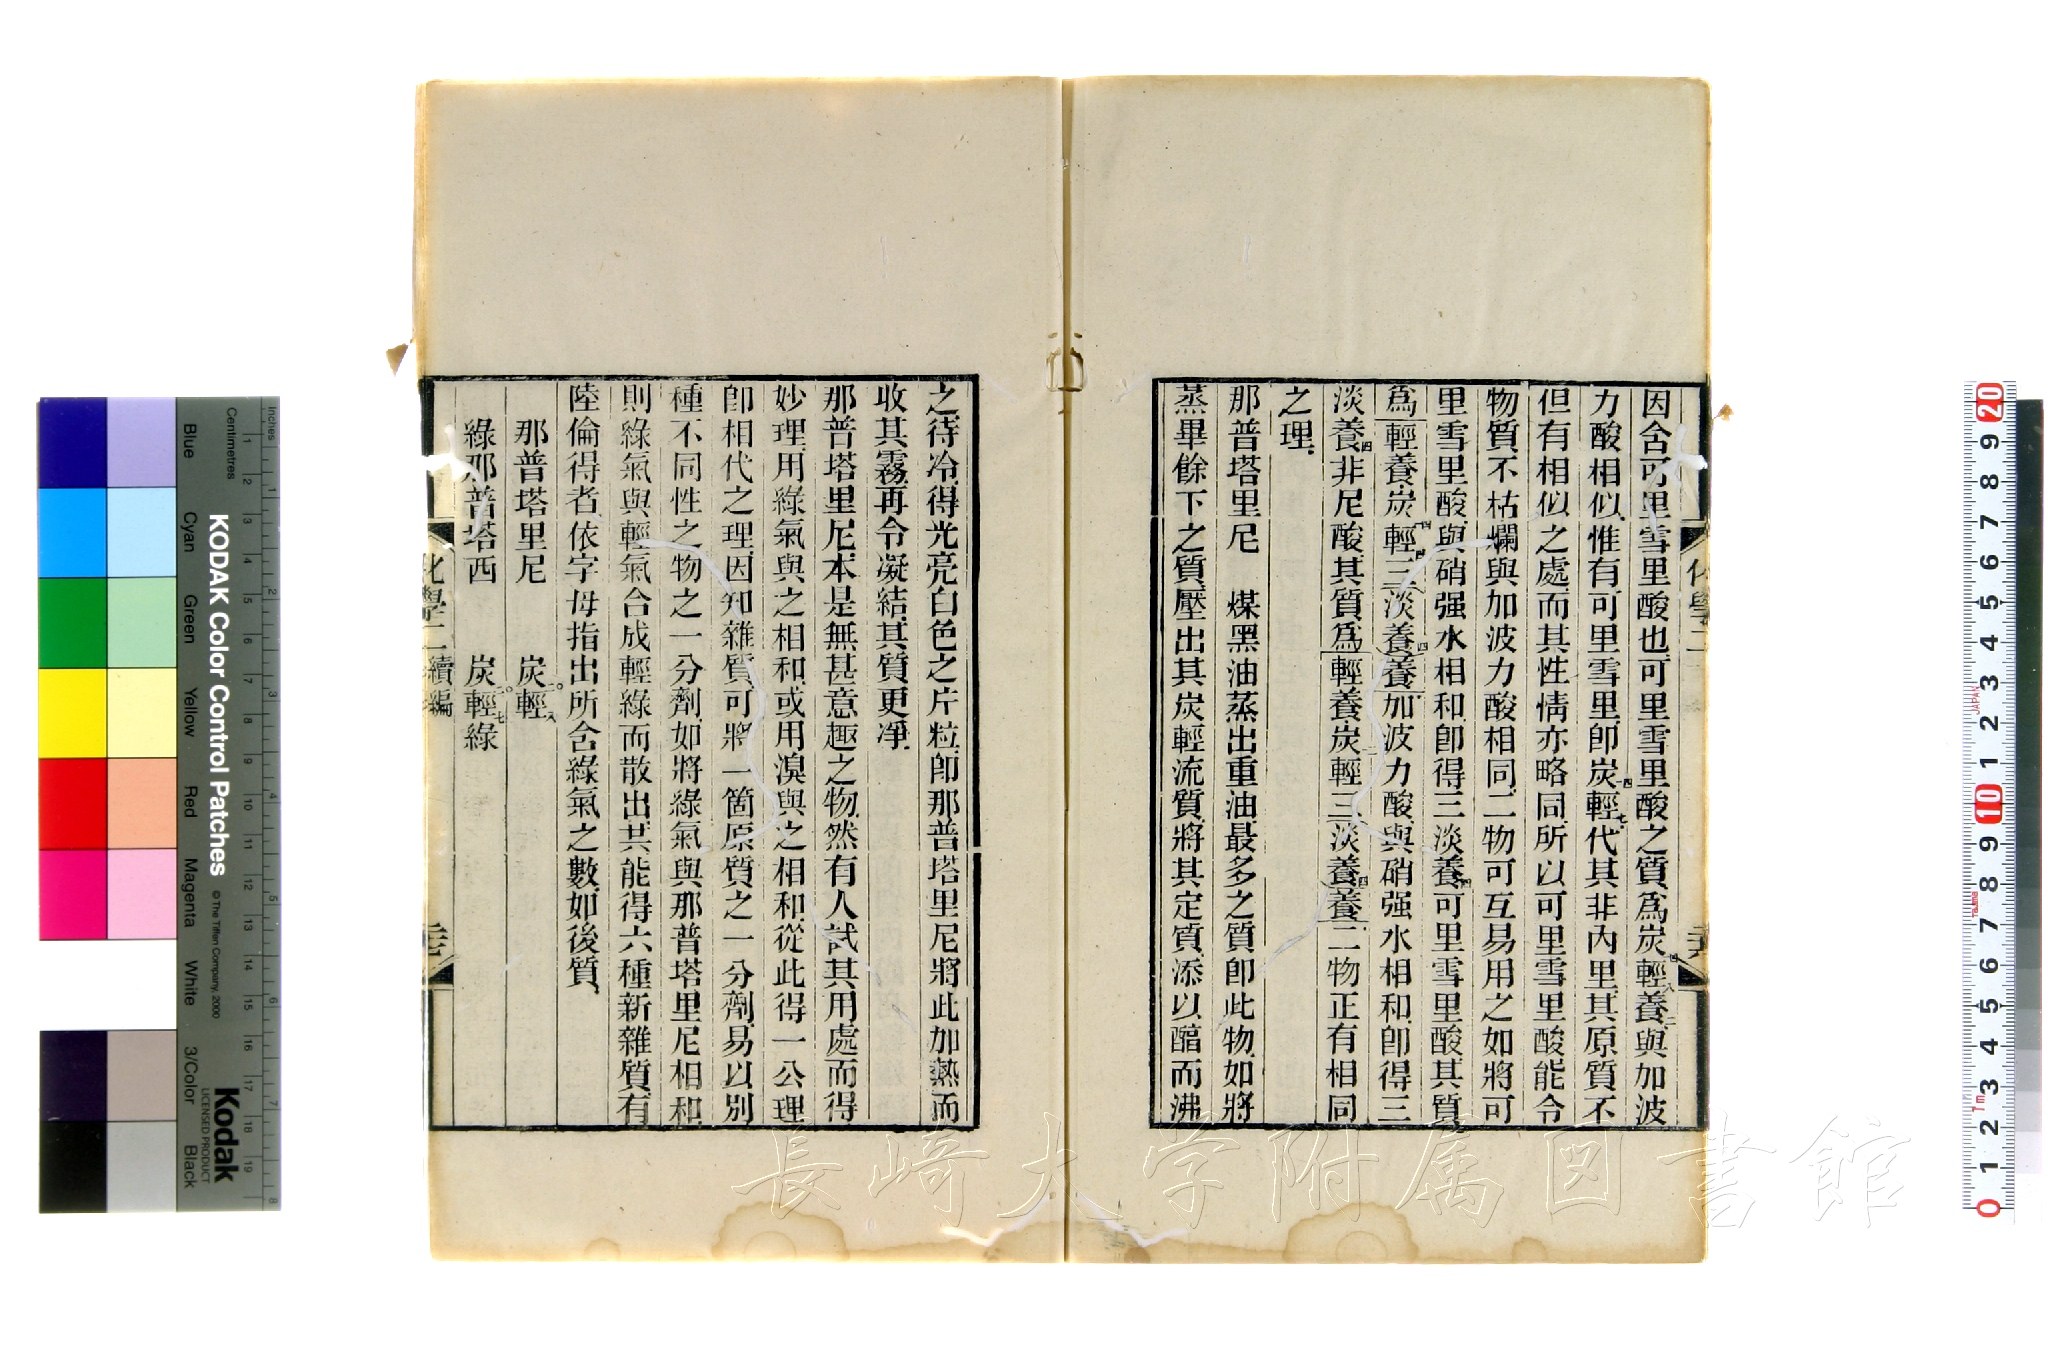 因含可里雪里酸也可里雪里酸之質爲炭輕養與加波
力酸相似惟有可里雪里卽炭輕代其非內里其原質不
但有相似之處而其性情亦略同所以可里雪里酸能令
物質不枯爛與加波力酸相同二物可互易用之如將可
里雪里酸與硝强水相和卽得三淡養可里雪里酸其質
爲輕養炭輕三淡養養加波力酸與硝强水相和卽得三
淡養非尼酸其質爲輕養炭輕三淡養養二物正有相同
之理
那普塔里尼　煤黑油蒸出重油最多之質卽此物如將
蒸畢餘下之質壓出其炭輕流質將其定質添以醕而沸
之待冷得光亮白色之片粒卽那普塔里尼將此加熱而
收其霧再令凝結其質更淨
那普塔里尼本是無甚意趣之物然有人試其用處而得
妙理用綠氣與之相和或用溴與之相和從此得一公理
卽相代之理因知雜質可將一箇原質之一分劑易以別
種不同性之物之一分劑如將綠氣與那普塔里尼相和
則綠氣與輕氣合成輕綠而散出共能得六種新雜質有
陸倫得者依字母指出所含綠氣之數如後質
那普塔里尼　炭輕
綠那普塔西　炭輕綠
化學二 續編
KODAK Color Control Patches
© The Tiffen Company, 2000
Kodak
LICENSED PRODUCT
Blue Cyan Green Yellow Red Magenta White 3/Color Black
Inches
Centimetres
長崎大学附属図書館
JAPAN